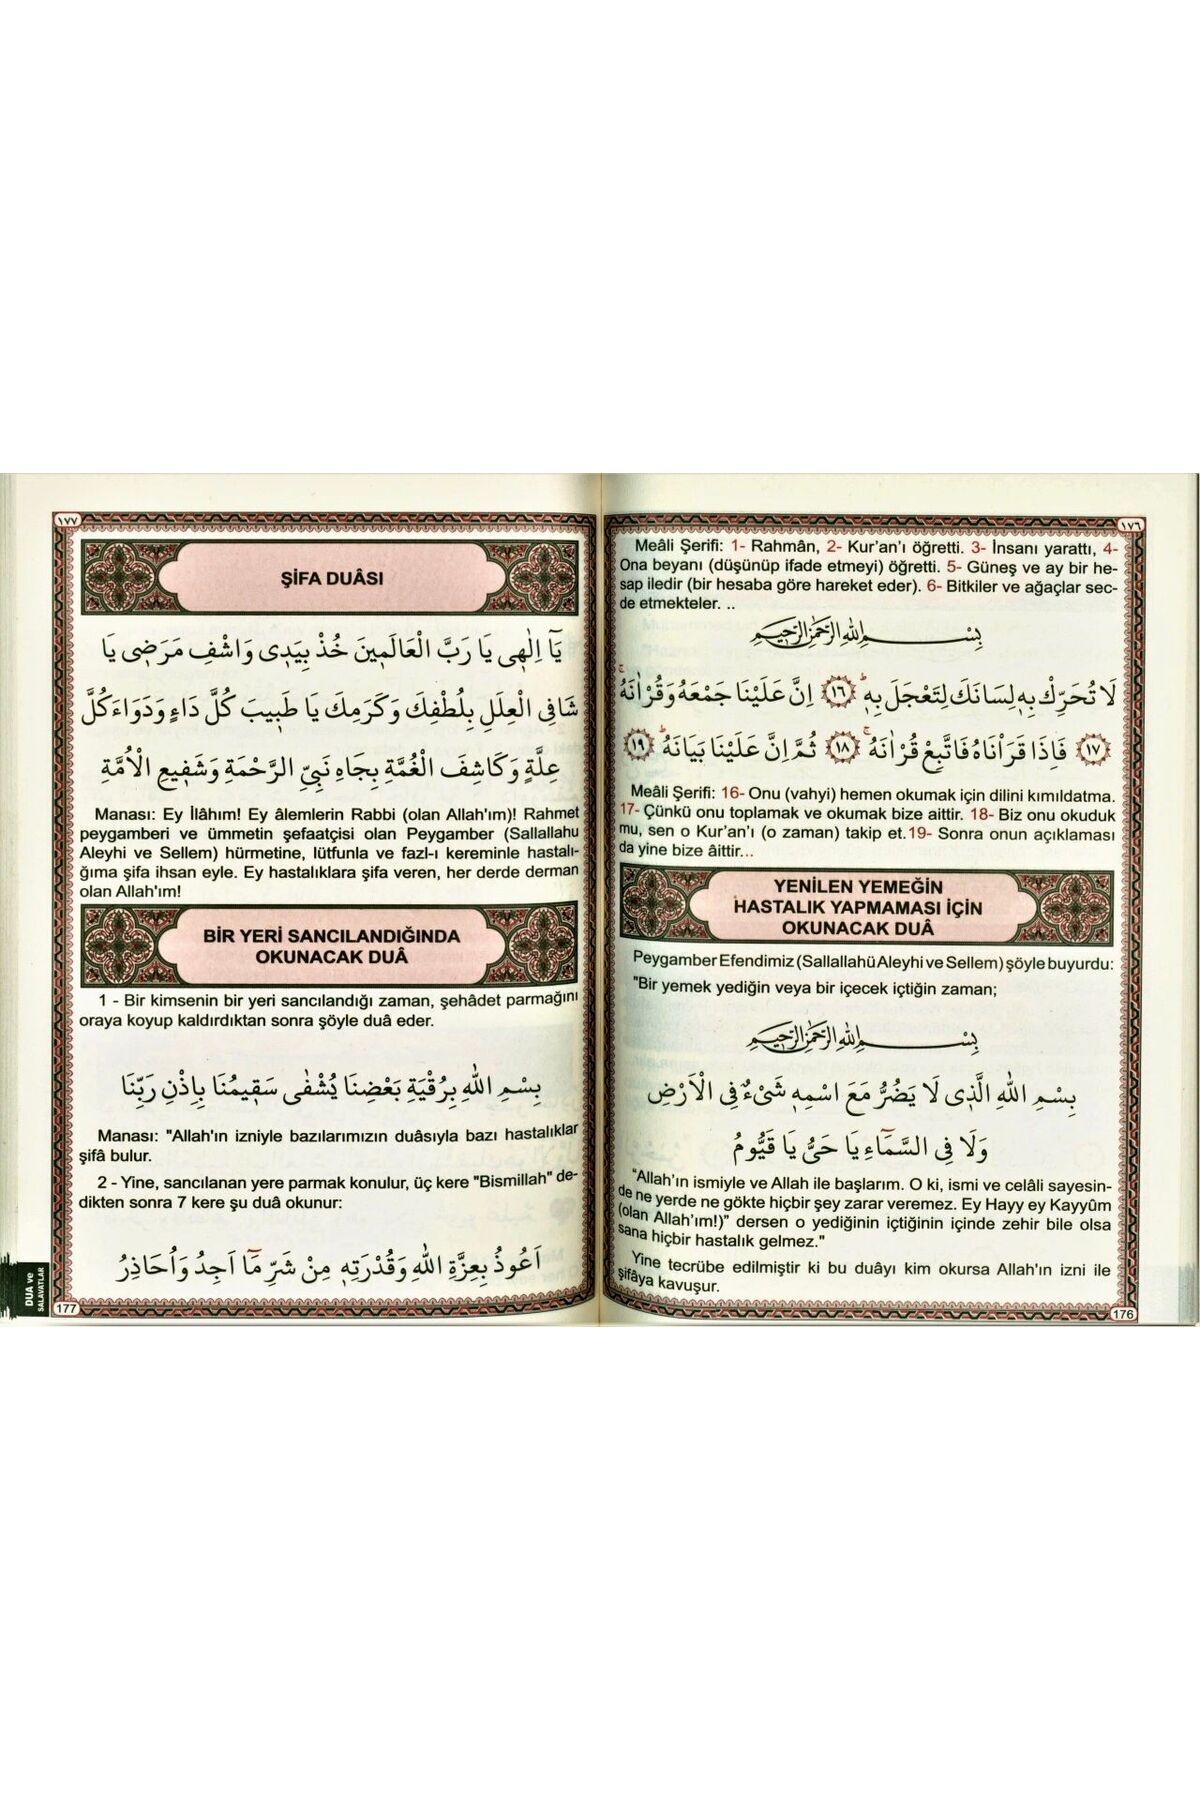 ١٧٦
Meâli Şerifi: 1- Rahmân, 2- Kur'an'ı öğretti. 3- İnsanı yarattı, 4-
Ona beyanı (düşünüp ifade etmeyi) öğretti. 5- Güneş ve ay bir he-
sap iledir (bir hesaba göre hareket eder). 6- Bitkiler ve ağaçlar sec-
de etmekteler. ..
بِسْمِ اللهِ الرَّحْمٰنِ الرَّحِيمِ
لَا تُحَرِّكْ بِهِ لِسَانَكَ لِتَعْجَلَ بِهِ ﴿١٦﴾ اِنَّ عَلَيْنَا جَمْعَهُ وَقُرْاٰنَهُ
﴿١٧﴾ فَاِذَا قَرَاْنَاهُ فَاتَّبِعْ قُرْاٰنَهُ ﴿١٨﴾ ثُمَّ اِنَّ عَلَيْنَا بَيَانَهُ ﴿١٩﴾
Meâli Şerifi: 16- Onu (vahyi) hemen okumak için dilini kımıldatma.
17- Çünkü onu toplamak ve okumak bize aittir. 18- Biz onu okuduk
mu, sen o Kur'an'ı (o zaman) takip et.19- Sonra onun açıklaması
da yine bize âittir...
YENİLEN YEMEĞİN
HASTALIK YAPMAMASI İÇİN
OKUNACAK DUÂ
Peygamber Efendimiz (Sallallahü Aleyhi ve Sellem) şöyle buyurdu:
"Bir yemek yediğin veya bir içecek içtiğin zaman;
بِسْمِ اللهِ الرَّحْمٰنِ الرَّحِيمِ
بِسْمِ اللهِ الَّذِى لَا يَضُرُّ مَعَ اسْمِهِ شَىْءٌ فِى الْاَرْضِ
وَلَا فِى السَّمَاءِ يَا حَىُّ يَا قَيُّومُ
"Allah'ın ismiyle ve Allah ile başlarım. O ki, ismi ve celâli sayesin-
de ne yerde ne gökte hiçbir şey zarar veremez. Ey Hayy ey Kayyûm
(olan Allah'ım!)" dersen o yediğinin içtiğinin içinde zehir bile olsa
sana hiçbir hastalık gelmez."
Yine tecrübe edilmiştir ki bu duâyı kim okursa Allah'ın izni ile
şifâya kavuşur.
176
١٧٧
ŞİFA DUÂSI
يَا اِلٰهِى يَا رَبَّ الْعَالَمِينَ خُذْ بِيَدِى وَاشْفِ مَرَضِى يَا
شَافِىَ الْعِلَلِ بِلُطْفِكَ وَكَرَمِكَ يَا طَبِيبَ كُلِّ دَاءٍ وَدَوَاءَ كُلِّ
عِلَّةٍ وَكَاشِفَ الْغُمَّةِ بِجَاهِ نَبِىِّ الرَّحْمَةِ وَشَفِيعِ الْاُمَّةِ
Manası: Ey İlâhım! Ey âlemlerin Rabbi (olan Allah'ım)! Rahmet
peygamberi ve ümmetin şefaatçisi olan Peygamber (Sallallahu
Aleyhi ve Sellem) hürmetine, lütfunla ve fazl-ı kereminle hastalı-
ğıma şifa ihsan eyle. Ey hastalıklara şifa veren, her derde derman
olan Allah'ım!
BİR YERİ SANCILANDIĞINDA
OKUNACAK DUÂ
1 - Bir kimsenin bir yeri sancılandığı zaman, şehâdet parmağını
oraya koyup kaldırdıktan sonra şöyle duâ eder.
بِسْمِ اللهِ بِرُقْيَةِ بَعْضِنَا يُشْفٰى سَقِيمُنَا بِاِذْنِ رَبِّنَا
Manası: "Allah'ın izniyle bazılarımızın duâsıyla bazı hastalıklar
şifâ bulur.
2 - Yine, sancılanan yere parmak konulur, üç kere "Bismillah" de-
dikten sonra 7 kere şu duâ okunur:
اَعُوذُ بِعِزَّةِ اللهِ وَقُدْرَتِهِ مِنْ شَرِّ مَا اَجِدُ وَاُحَاذِرُ
177
DUA ve
SALAVATLAR